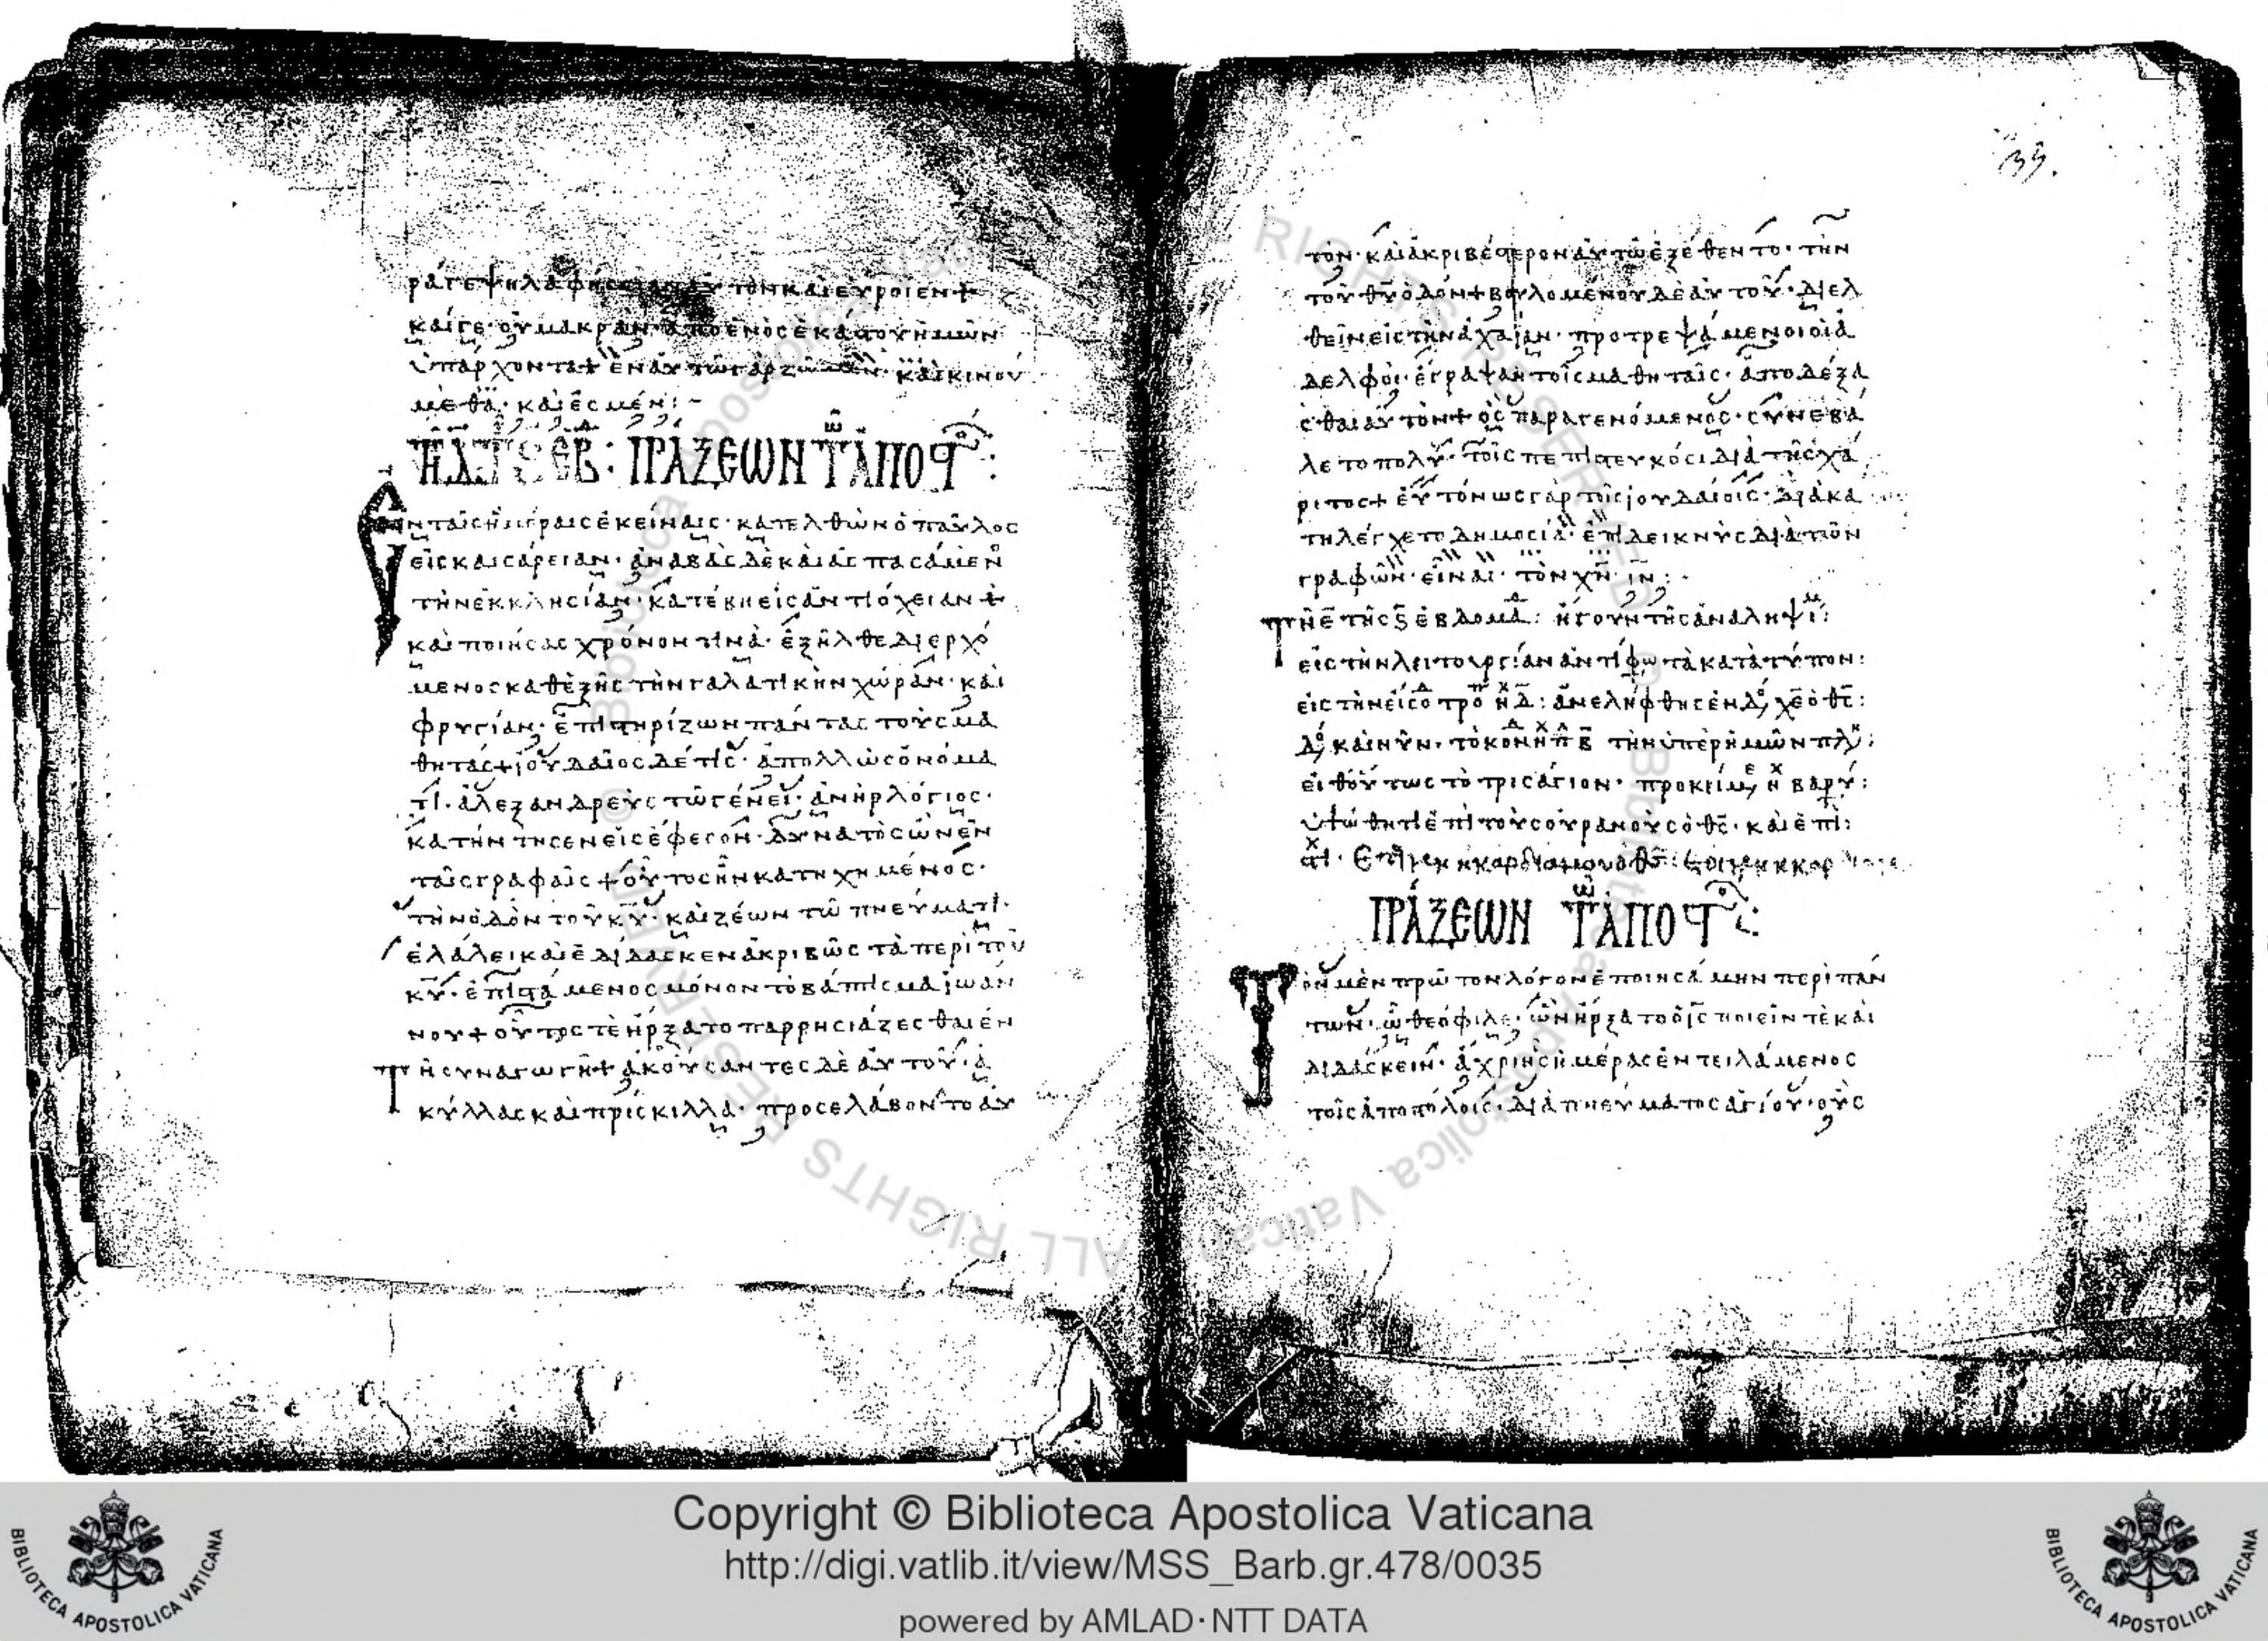 ράγε ψηλαφήσειαν αὐτὸν καὶ εὕροιεν +
καίγε οὐ μακρὰν ἀπὸ ἑνὸς ἑκάστου ἡμῶν
ὑπάρχοντα + ἐν αὐτῶ γὰρ ζῶμεν· καὶ κινού
μεθα· καὶ ἐσμέν :
ΠΡΆΞΕΩΝ ΤῶΝ ἈΠΟϹΤ :
Ἐν ταῖς ἡμέραις ἐκείναις· κατελθὼν ὁ παῦλος
εἰς καισάρειαν· ἀναβὰς δὲ καὶ ἀσπασάμεν
τὴν ἐκκλησίαν· κατέβη εἰς ἀντιόχειαν +
καὶ ποιήσας χρόνον τινὰ· ἐξῆλθε διερχό
μενος καθεξῆς τὴν γαλατικὴν χώραν· καὶ
φρυγίαν· ἐπιστηρίζων πάντας τοὺς μα
θητάς + ἰουδαῖος δέ τις· ἀπολλὼς ὀνόμα
τι· ἀλεξανδρεὺς τῶ γένει· ἀνὴρ λόγιος·
κατήντησεν εἰς ἔφεσον· δυνατὸς ὢν ἐν
ταῖς γραφαῖς + οὗτος ἦν κατηχημένος·
τὴν ὁδὸν τοῦ κυ· καὶ ζέων τῶ πνεύματι·
ἐλάλει καὶ ἐδίδασκεν ἀκριβῶς τὰ περὶ τοῦ
κυ· ἐπιστάμενος μόνον τὸ βάπτισμα ἰωάν
νου + οὗτός τε ἤρξατο παρρησιάζεσθαι ἐν
τῆ συναγωγῆ + ἀκούσαντες δὲ αὐτοῦ· ἀ
κύλλας καὶ πρίσκιλλα· προσελάβοντο αὐ
39.
τὸν· καὶ ἀκριβέστερον αὐτῶ ἐξέθεντο· τὴν
τοῦ θυ ὁδόν + βουλομένου δὲ αὐτοῦ· διελ
θεῖν εἰς τὴν ἀχαΐαν· προτρεψάμενοι οἱ ἀ
δελφοὶ· ἔγραψαν τοῖς μαθηταῖς· ἀποδέξα
σθαι αὐτόν + ὃς παραγενόμενος· συνεβά
λετο πολὺ· τοῖς πεπιστευκόσι διὰ τῆς χά
ριτος + εὐτόνως γὰρ τοῖς ἰουδαίοις· διακα
τηλέγχετο δημοσία· ἐπιδεικνὺς διὰ τῶν
γραφῶν· εἶναι· τὸν χν ιν :
Τῆ ε τῆς ϛ ἑβδομα : ἤγουν τῆς ἀναληψι :
εἰς τὴν λειτουργίαν ἀντίφω τὰ κατὰ τύπον :
εἰς τὴν εἴσο τρο ηχ δ : ἀνελήφθης ἐν δο χε ὁ θς :
δο καὶ νῦν· τὸ κον ηχ πλ β τὴν ὑπὲρ ἡμῶν πλ :
εἶθ οὕτως τὸ τρισάγιον· προκείμε ηχ βαρύ :
ὑψώθητι ἐπὶ τοὺς οὐρανοὺς ὁ θς· καὶ ἐπὶ :
στι
ΠΡΆΞΕΩΝ ΤῶΝ ἈΠΟϹΤ :
Τὸν μὲν πρῶτον λόγον ἐποιησάμην περὶ πάν
των· ὦ θεόφιλε· ὧν ἤρξατο ὁ ις ποιεῖν τὲ καὶ
διδάσκειν· ἄχρι ἧς ἡμέρας ἐντειλάμενος
τοῖς ἀποστόλοις· διὰ πνεύματος ἁγίου· οὓς
BIBLIOTECA APOSTOLICA VATICANA
Copyright © Biblioteca Apostolica Vaticana
http://digi.vatlib.it/view/MSS_Barb.gr.478/0035
powered by AMLAD·NTT DATA
BIBLIOTECA APOSTOLICA VATICANA